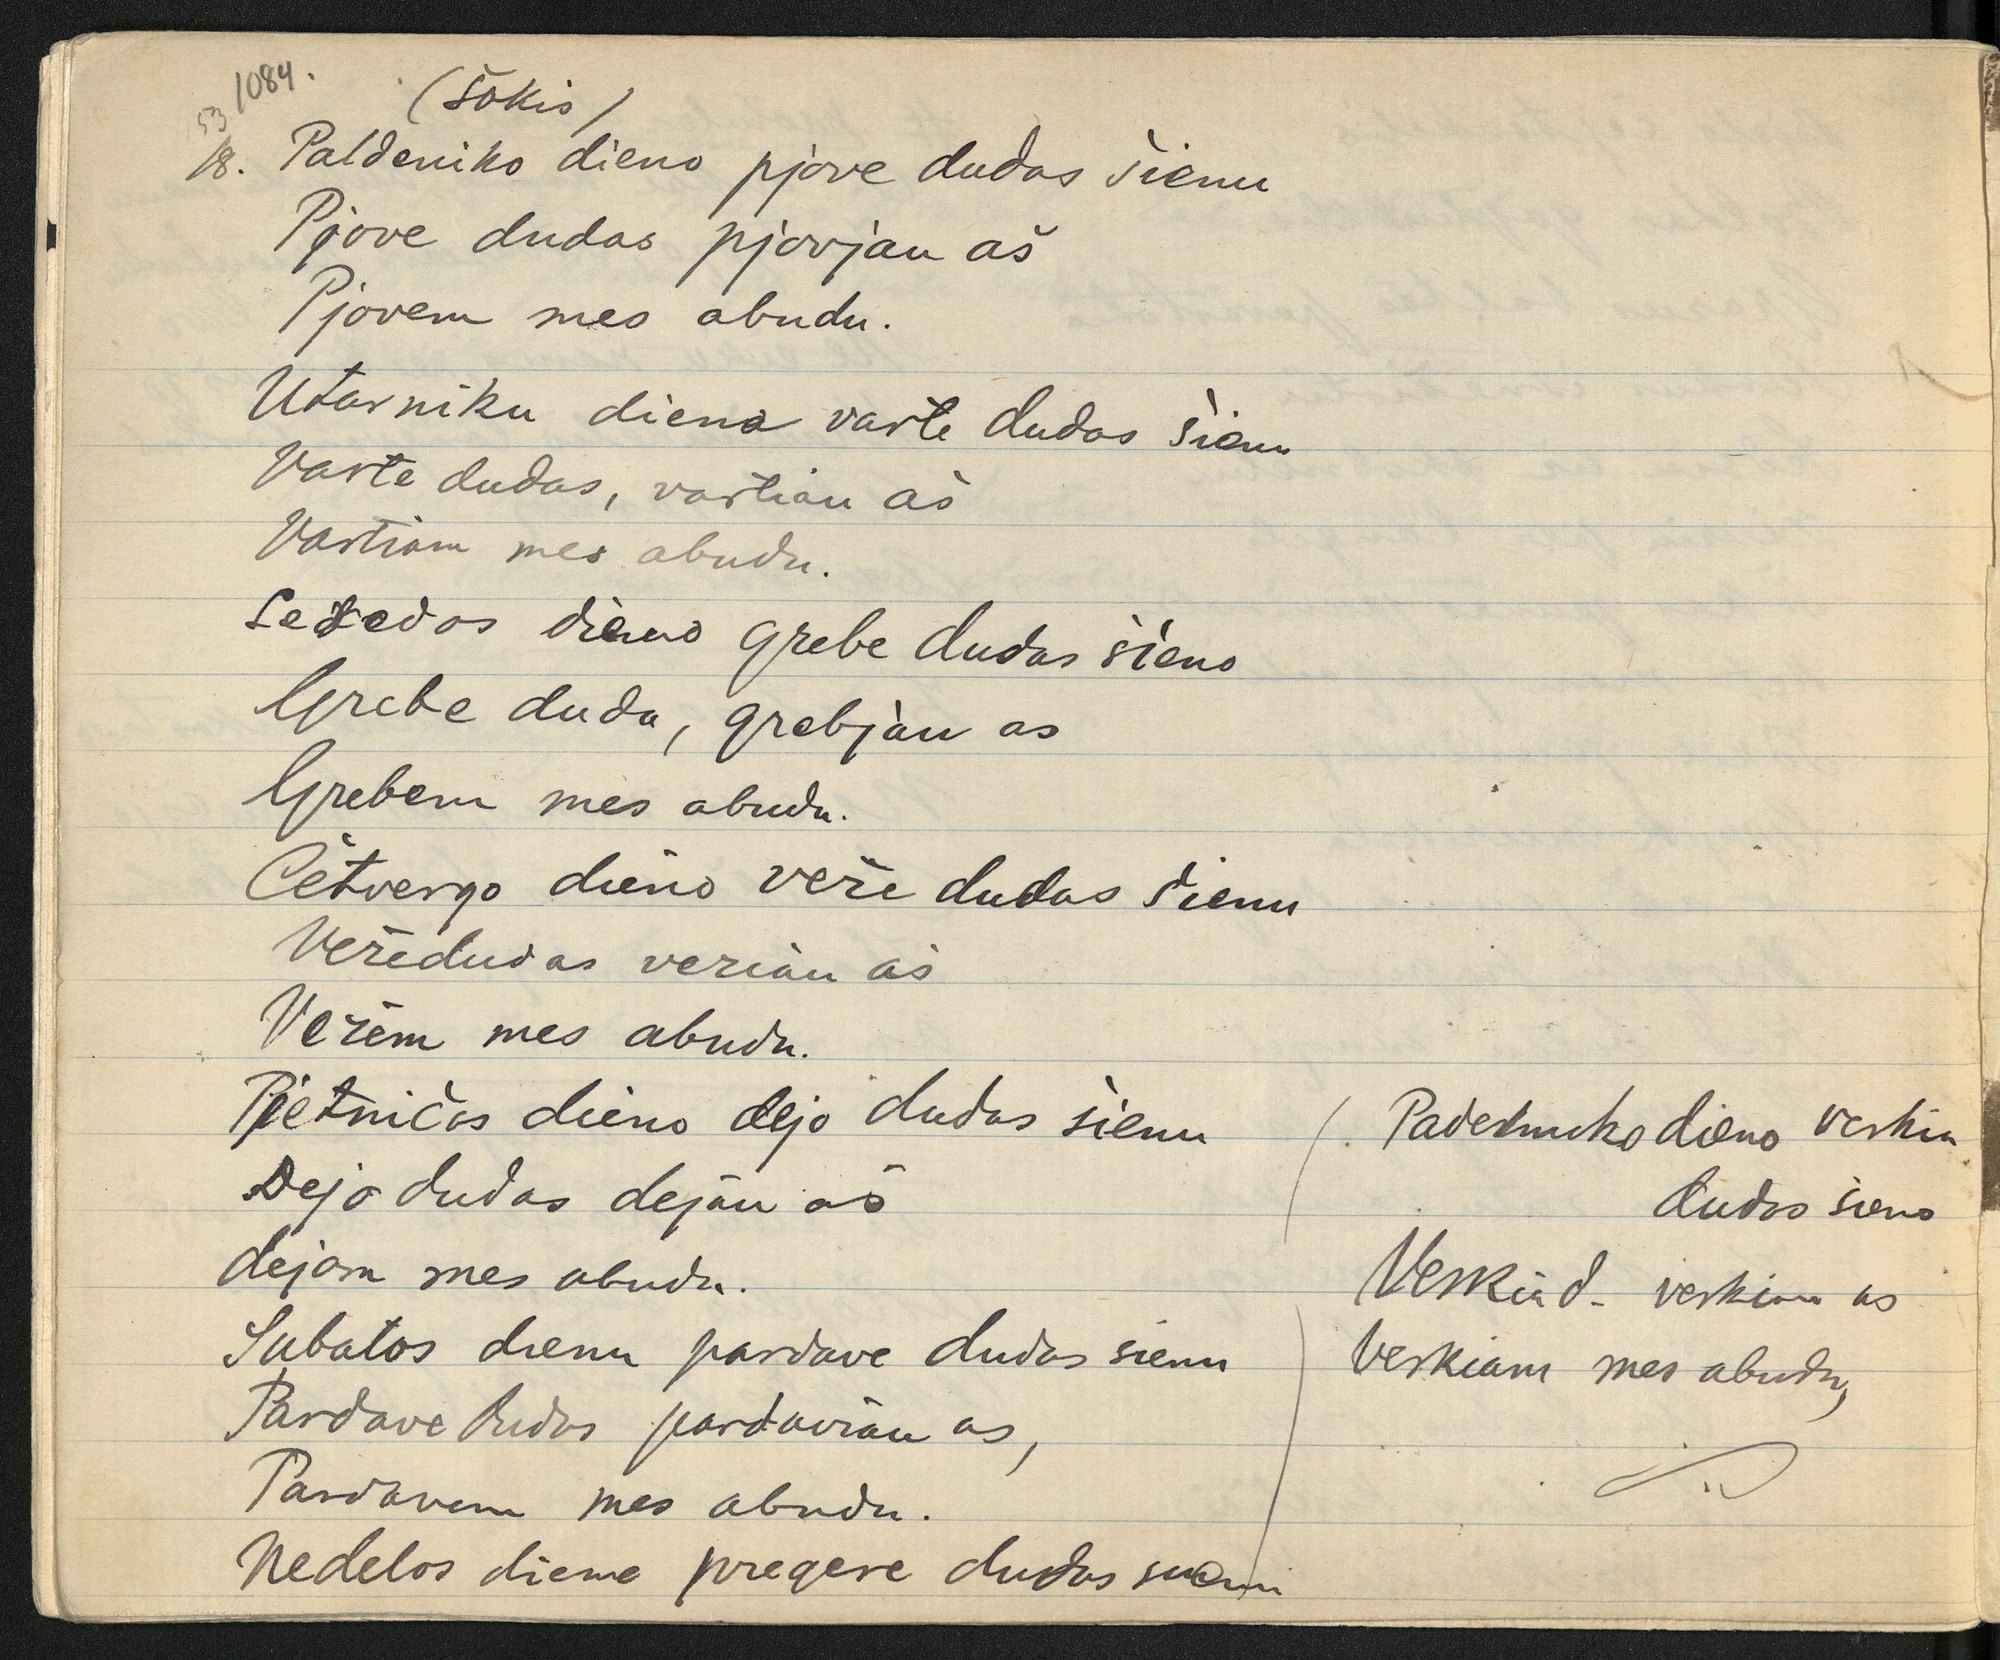 1084.
53
(šokis)
18. Paldeniko dieno pjove dudas šienu
Pjove dudas pjovjau aš
Pjovem mes abudu.
Utarniku diena varte dudas šienu
Varte dudas, vartiau aš
Vartiam mes abudu.
Seredos dieno grebe dudas šieno
Grebe duda, grebjau as
Grebem mes abudu.
Četvergo dieno veže dudas šienu
Veže dudas veziau aš
Vežem mes abudu.
Pjetničos dieno dejo dudas šienu
Dejo dudas dejau aš
dejom mes abudu.
Subatos dienu pardave dudas sienu
Pardave dudas pardaviau as,
Pardavem mes abudu.
Nedelos diena pregere dudas
Padeniuko dieno verkia
dudas sieno
Verkia d- verkiau as
Verkiam mes abudu,